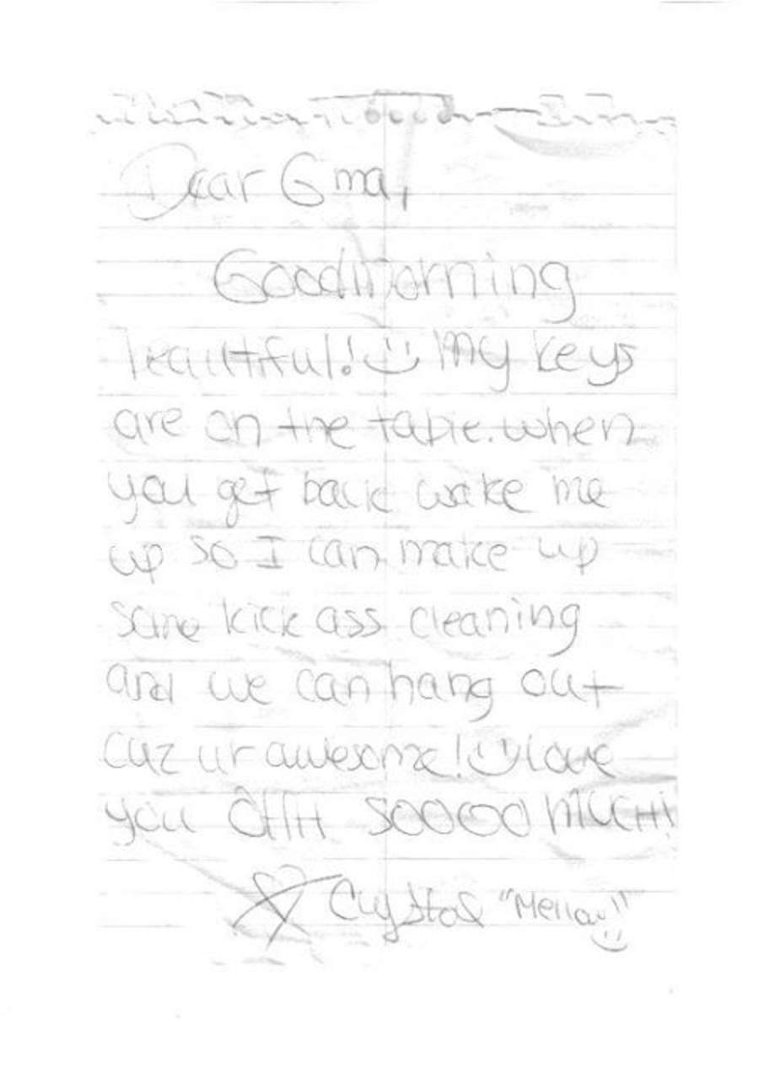 Dear Gma,
Goodmorning
beautiful! my keys
are on the table. when
you get back wake me
up so I can make up
some kick ass cleaning
and we can hang out
cuz ur awesome! love
you OHH SOOOOO MUCH!
Crystal "Mellow"